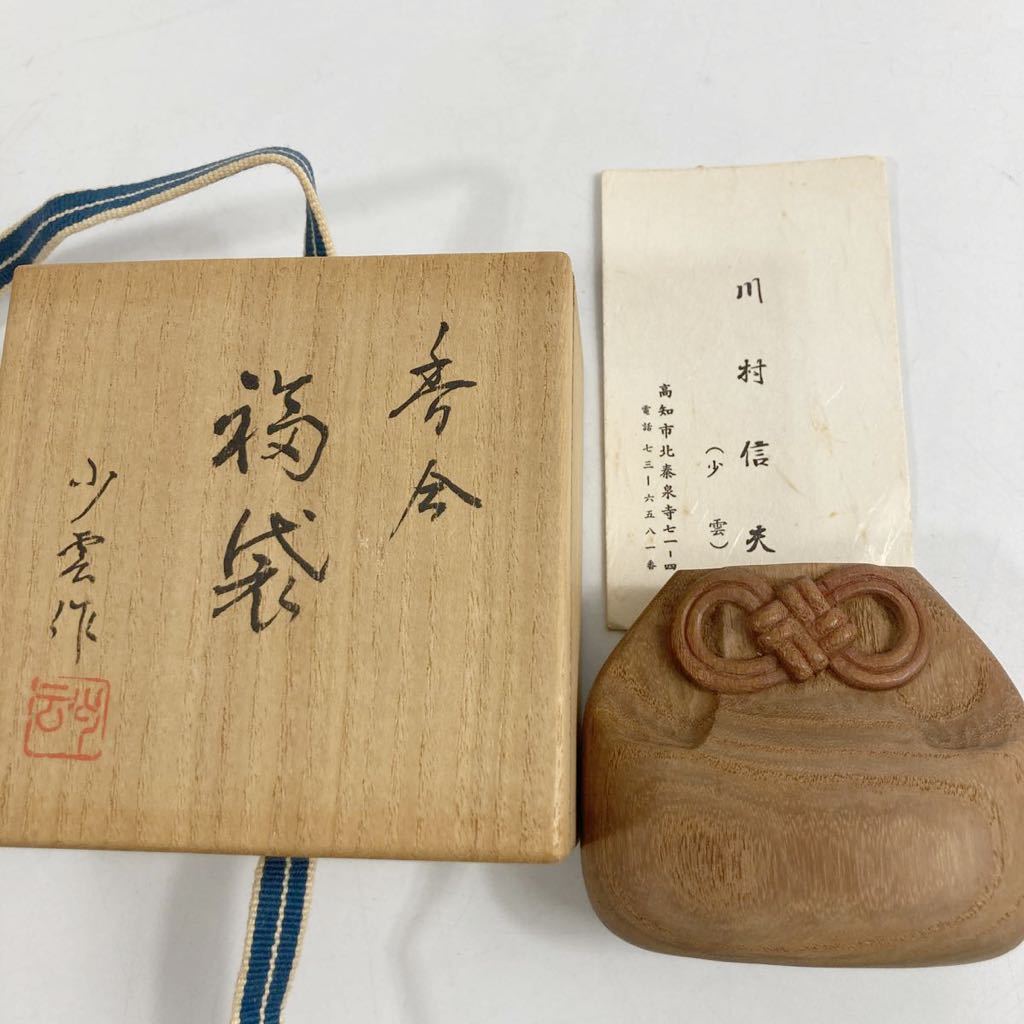 香合
福袋
少雲作
少雲
川村信夫
（少雲）
高知市北秦泉寺七一ー四
電話 七三ー六五八一番